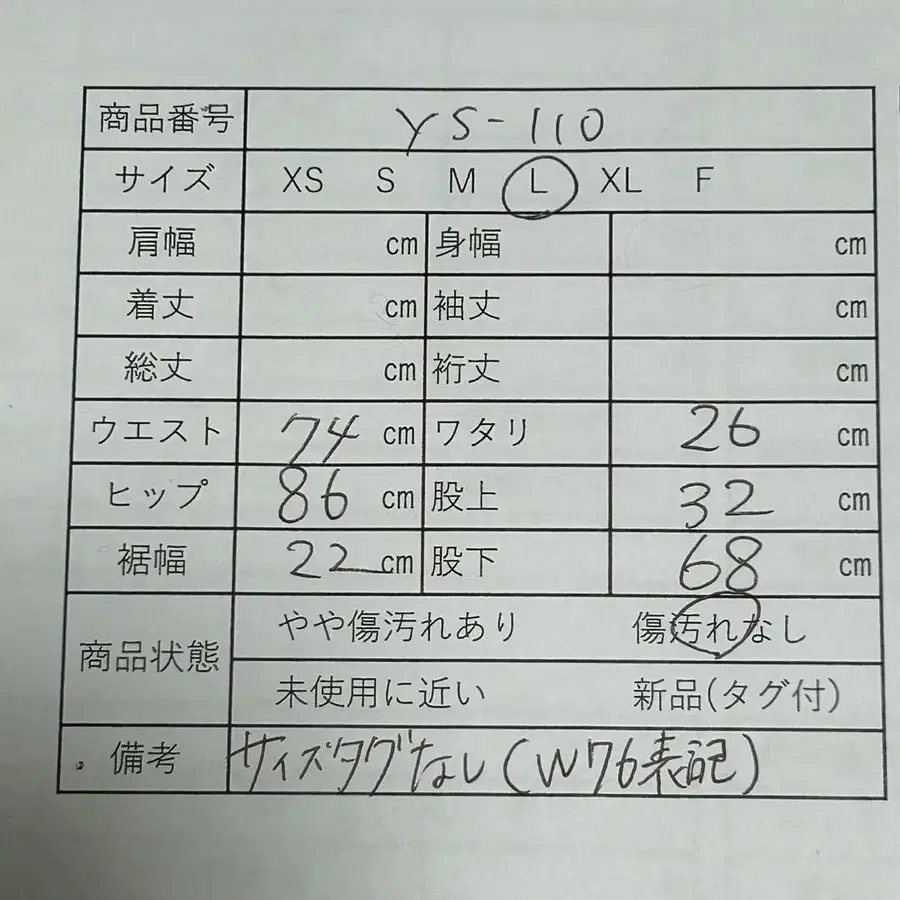 商品番号 YS-110
サイズ XS S M L XL F
肩幅 cm 身幅 cm
着丈 cm 袖丈 cm
総丈 cm 裄丈 cm
ウエスト 74 cm ワタリ 26 cm
ヒップ 86 cm 股上 32 cm
裾幅 22 cm 股下 68 cm
商品状態 やや傷汚れあり 傷汚れなし
未使用に近い 新品(タグ付)
備考 サイズタグなし(W76表記)